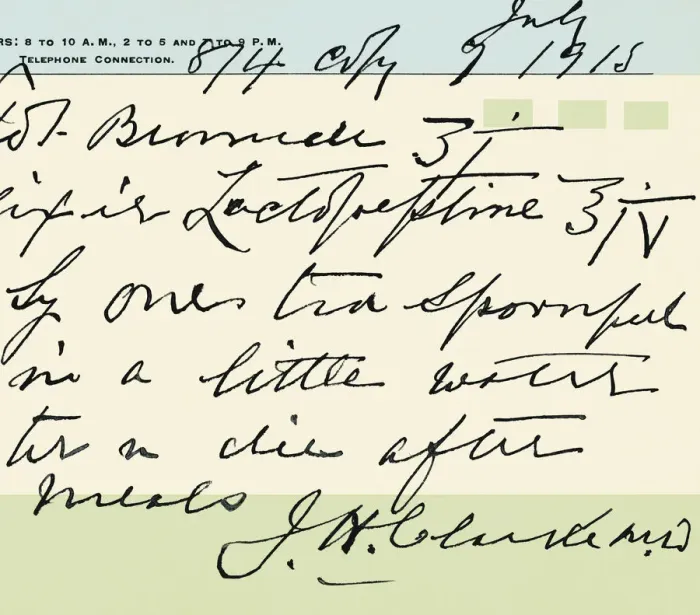 July
RS: 8 TO 10 A.M., 2 TO 5 AND 7 TO 9 P.M.
TELEPHONE CONNECTION. 874 copy 9 1915
Bromide ʒi
Lactopeptine ʒiv
Sy one tea spoonful
in a little water
ter in die after
meals
J. H. Clarke M.D